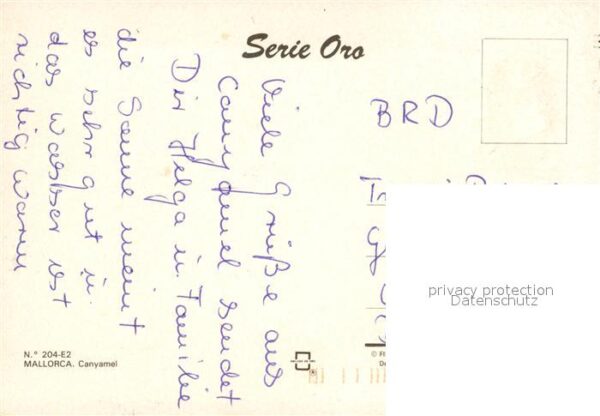 Serie Oro
Viele Grüße aus
Canyamel sendet
Dir Helga u. Familie
die Sonne meint
es sehr gut u.
das Wasser ist
richtig warm
BRD
privacy protection
Datenschutz
N.° 204-E2
MALLORCA. Canyamel